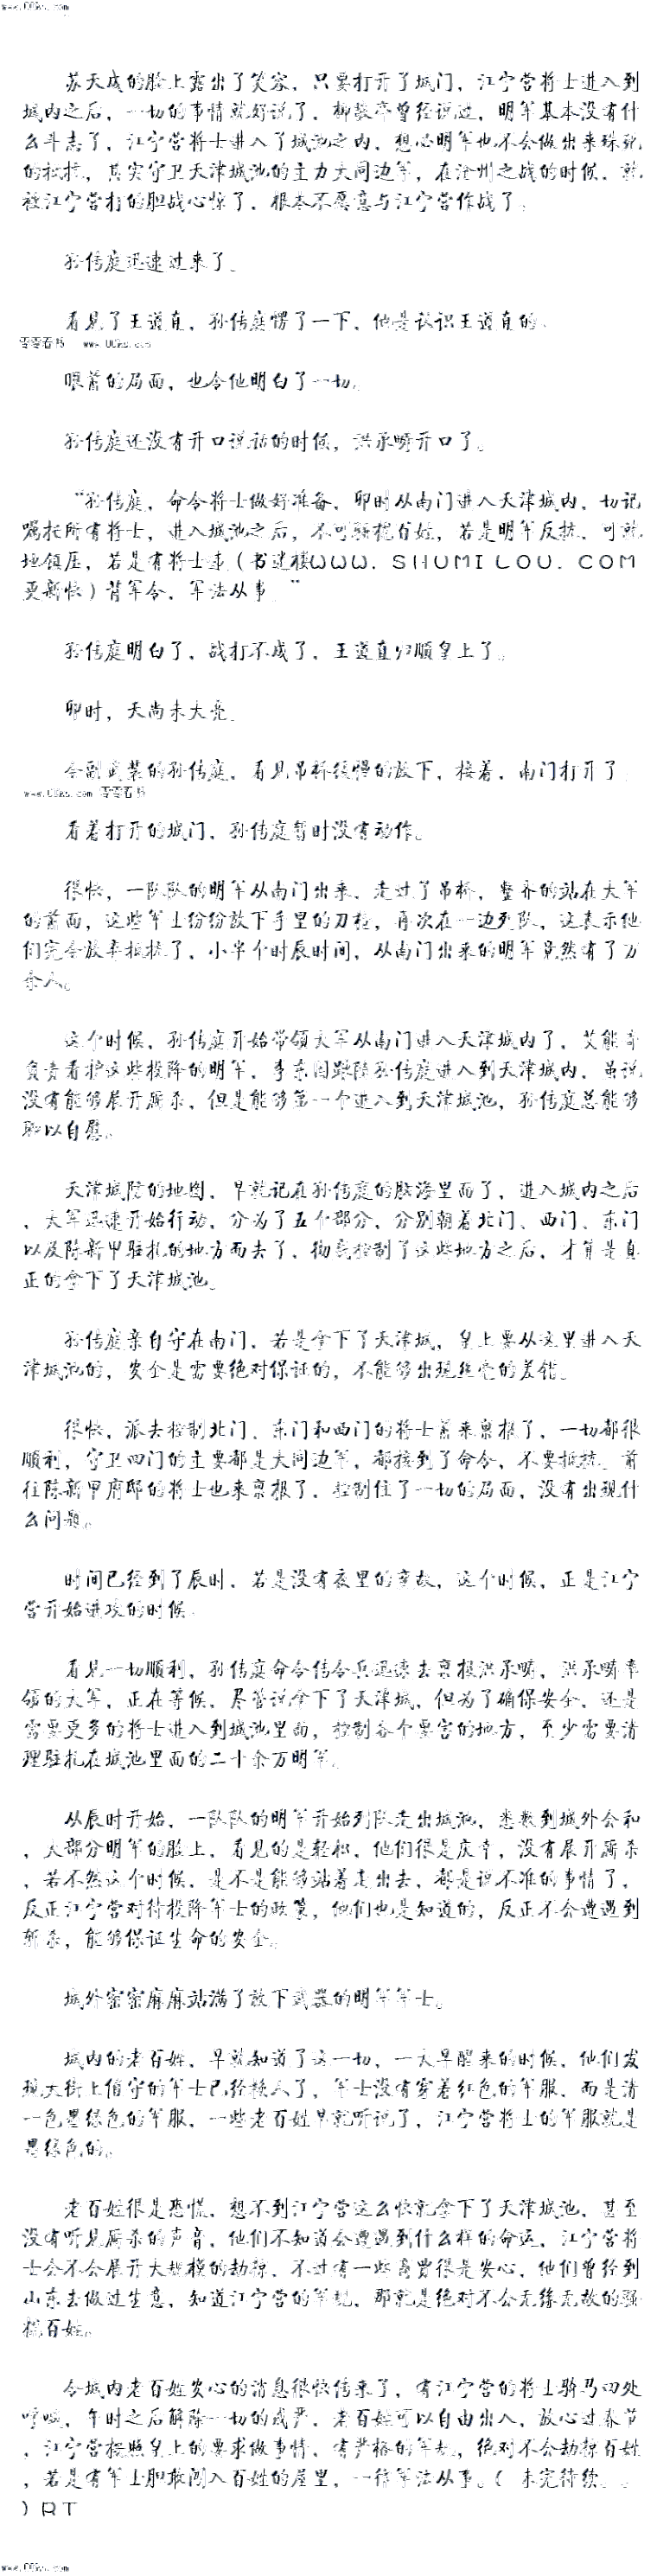 www.00ks.com
苏天成的脸上露出了笑容，只要打开了城门，江宁营将士进入到
城内之后，一切的事情就好说了，柳敬亭曾经说过，明军基本没有什
么斗志了，江宁营将士进入了城池之内，想必明军也不会做出来殊死
的抵抗，其实守卫天津城池的主力大同边军，在沧州之战的时候，就
被江宁营打的胆战心惊了，根本不愿意与江宁营作战了。
孙传庭迅速过来了。
看见了王道直，孙传庭愣了一下，他是认识王道直的。
零零看书 www.00ks.com
眼前的局面，也令他明白了一切。
孙传庭还没有开口说话的时候，洪承畴开口了。
“孙传庭，命令将士做好准备，卯时从南门进入天津城内，切记
嘱托所有将士，进入城池之后，不可骚扰百姓，若是明军反抗，可就
地镇压，若是有将士违（书迷楼WWW．SHUMILOU．COM
更新快）背军令，军法从事。”
孙传庭明白了，战打不成了，王道直归顺皇上了。
卯时，天尚未大亮。
全副武装的孙传庭，看见吊桥缓慢的放下，接着，南门打开了。
www.00ks.com 零零看书
看着打开的城门，孙传庭暂时没有动作。
很快，一队队的明军从南门出来，走过了吊桥，整齐的站在大军
的前面，这些军士纷纷放下手里的刀枪，再次在一边列队，这表示他
们完全放弃抵抗了，小半个时辰时间，从南门出来的明军竟然有了万
余人。
这个时候，孙传庭开始带领大军从南门进入天津城内了，艾能奇
负责看护这些投降的明军，李东国跟随孙传庭进入到天津城内，虽说
没有能够展开厮杀，但是能够第一个进入到天津城池，孙传庭总能够
聊以自慰。
天津城防的地图，早就记在孙传庭的脑海里面了，进入城内之后
，大军迅速开始行动，分为了五个部分，分别朝着北门、西门、东门
以及陈新甲驻扎的地方而去了，彻底控制了这些地方之后，才算是真
正的拿下了天津城池。
孙传庭亲自守在南门，若是拿下了天津城，皇上要从这里进入天
津城池的，安全是需要绝对保证的，不能够出现丝毫的差错。
很快，派去控制北门、东门和西门的将士前来禀报了，一切都很
顺利，守卫四门的主要都是大同边军，都接到了命令，不要抵抗。前
往陈新甲府邸的将士也来禀报了，控制住了一切的局面，没有出现什
么问题。
时间已经到了辰时，若是没有夜里的变故，这个时候，正是江宁
营开始进攻的时候。
看见一切顺利，孙传庭命令传令兵迅速去禀报洪承畴，洪承畴率
领的大军，正在等候，尽管说拿下了天津城，但为了确保安全，还是
需要更多的将士进入到城池里面，控制各个要害的地方，至少需要清
理驻扎在城池里面的二十余万明军。
从辰时开始，一队队的明军开始列队走出城池，悉数到城外会和
，大部分明军的脸上，看见的是轻松，他们很是庆幸，没有展开厮杀
，若不然这个时候，是不是能够站着走出去，都是说不准的事情了，
反正江宁营对待投降军士的政策，他们也是知道的，反正不会遭遇到
斩杀，能够保证生命的安全。
城外密密麻麻站满了放下武器的明军军士。
城内的老百姓，早就知道了这一切，一大早醒来的时候，他们发
现大街上值守的军士已经换人了，军士没有穿着红色的军服，而是清
一色墨绿色的军服，一些老百姓早就听说了，江宁营将士的军服就是
墨绿色的。
老百姓很是恐慌，想不到江宁营这么快就拿下了天津城池，甚至
没有听见厮杀的声音，他们不知道会遭遇到什么样的命运，江宁营将
士会不会展开大规模的劫掠，不过有一些商贾很是安心，他们曾经到
山东去做过生意，知道江宁营的军规，那就是绝对不会无缘无故的骚
扰百姓。
令城内老百姓安心的消息很快传来了，有江宁营的将士骑马四处
呼喊，午时之后解除一切的戒严，老百姓可以自由出入，放心过春节
，江宁营按照皇上的要求做事情，有严格的军规，绝对不会劫掠百姓
，若是有军士胆敢闯入百姓的屋里，一律军法从事。（未完待续。。
）ＲＴ
www.00ks.com